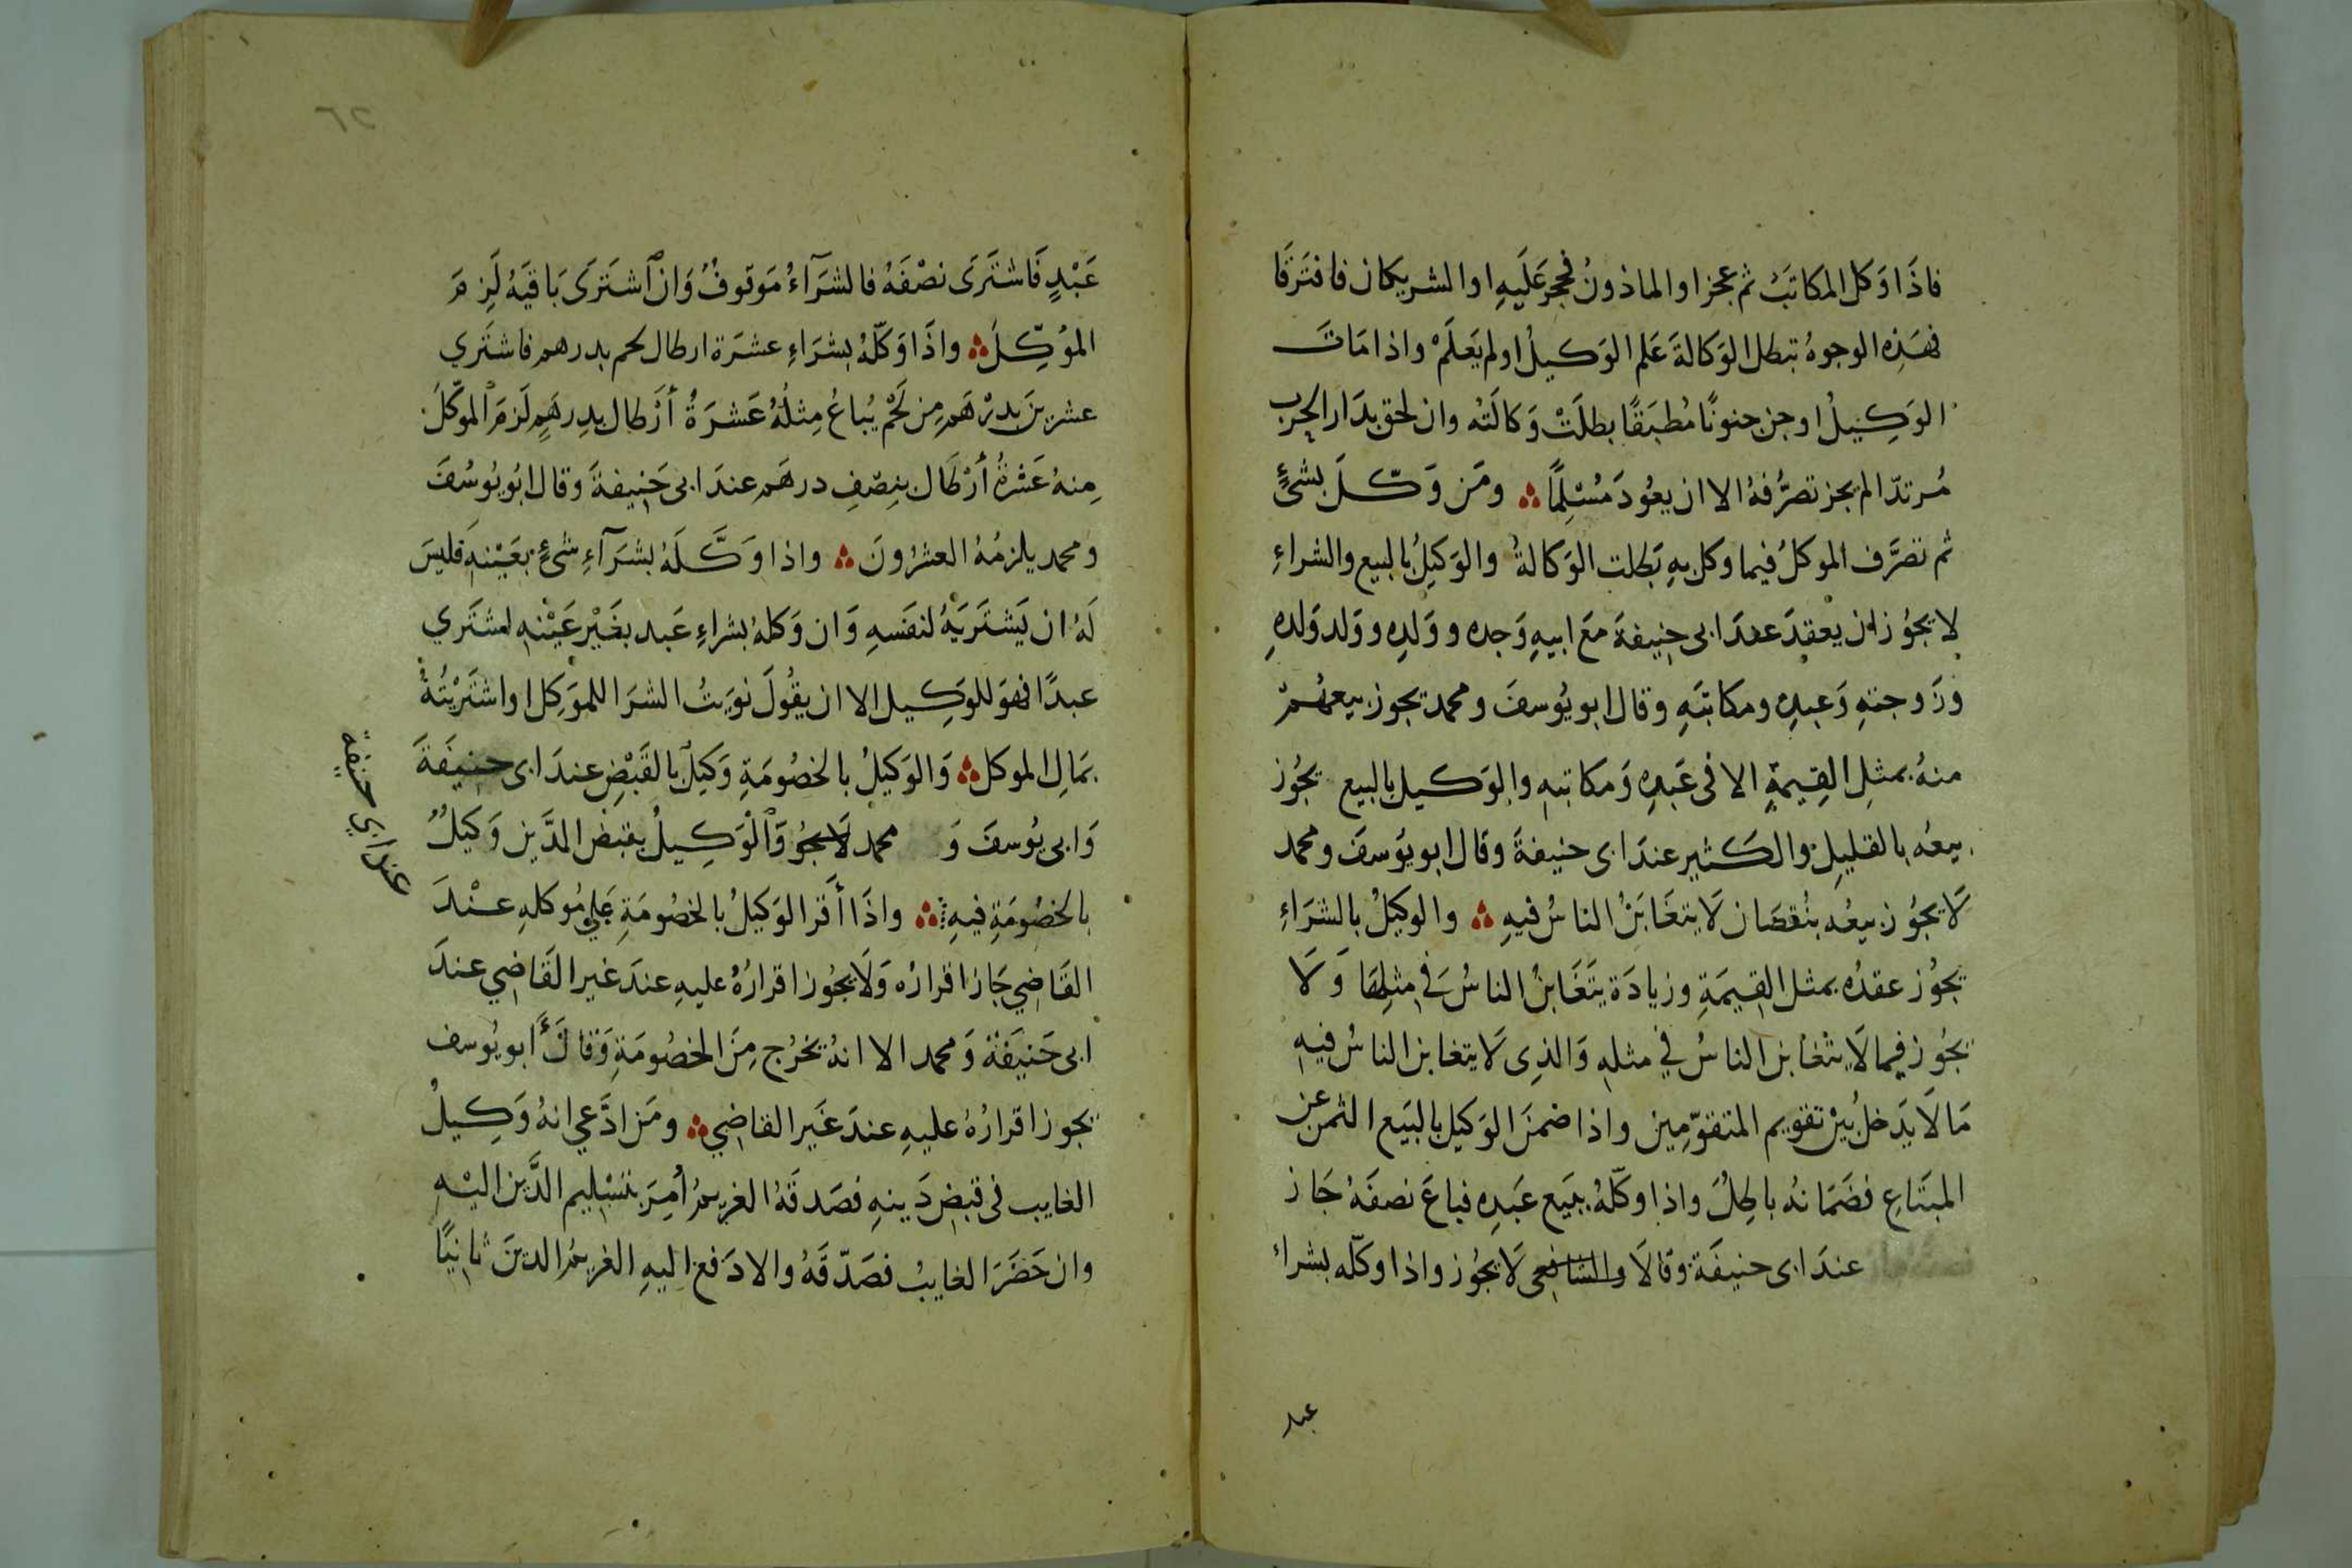 فاذَا وَكل المكاتَبُ ثم عجز او الماذونُ فحجر عَلَيهِ او الشريكان فافتَرقَا
فهَذِه الوجوهُ تبطل الوَكالةَ عَلم الوَكيلُ او لم يَعلَمْ واذا مَاتَ
الوَكِيلُ او جن جنونًا مُطبَقًا بطلَتْ وَكالَتُه وان لحق بدَار الحرب
مُرتدّا لم يجز تصرُّفهُ الا ان يعُودَ مُسْلِمًا ومَن وَكّلَ بشئٍ
ثم تصرَّف الموكلُ فيما وكل بهِ بَطلت الوَكالةُ والوَكيِلُ بالبيع والشراءِ
لا يجوُز ان يعقِدَ عندَ ابى حنِيفةَ مَعَ ابيهِ وَجده ووَلدِه ووَلد وَلدهِ
وزَوجتهِ وَعبدِه ومكاتبَهِ وقال ابو يوُسفَ ومحمد يجوز بيعهُمْ
منهُ بمثلِ القِيمةِ الا فى عَبدِه وَمكاتبهِ والوَكيل بالبيع يجُوز
بيعُه بالقليلِ والكَثير عندَ ابى حنيفةَ وقال ابو يوَسفَ ومحمد
لَا يجوُز بيعُه بنُقصَان لَا يتغَابَنُ الناسُ فيهِ والوكيلُ بالشرَاءِ
يجُوز عقدُه بمثل القِيمَةِ وزيادَة يتَغَابنُ الناسُ فى مثلِهَا وَلَا
يجُوز فيما لَا يتَغابن الناسُ في مثلهِ وَالذِى لَا يتغابن الناسُ فيهِ
مَا لَا يَدخلُ بَيْن تقويم المتقوّمِين واذا ضمنَ الوَكيل بالبَيع الثمن عن
المبتَاعِ فضَمَانهُ باطِلٌ واذا وكّلهُ ببَيع عَبدِه فباعَ نصفَهُ جَاز
عندَ ابى حنيفَة وقالَا والشافعى لَا يجُوز واذا وكّله بشراء
عبد
عَبْدٍ فَاشتَرَى نصْفَهُ فالشرَآءُ مَوقوفٌ وَان ٱشتَرَى بَاقيَهُ لَزِمَ
الموُكِّلَ واذَا وَكّلهُ بشرَاءِ عشرَة ارطال لحم بدرهم فاشتَري
عشرينَ بدرْهَم مِن لَحْم يُباعُ مِثلُهُ عَشرَةُ أرْطال بدِرهَمٍ لَزمَ الموَكّلَ
مِنهُ عَشْرةُ أرْطَال بنِصْفِ درهَم عندَ ابى حَنِيفةَ وقال ابُو يوُسُفَ
ومحمد يلزمُهُ العشرُونَ واذا وَكَّلَهُ بشرَآءِ شئٍ بعَيْنهِ فليسَ
لَهُ ان يَشترَيَهُ لنفَسهِ وَان وَكلهُ بشراءِ عَبد بغَيْرِ عَيْنهِ لمشتَري
عبدًا فهوَ للوَكِيل الا ان يقُولَ نوَيتُ الشرَا للموَكِل او اشتَرَيْتُهُ
بمَالِ الموكل وَالوَكيلُ بالخصُومَةِ وَكيِلٌ بالقَبْضِ عندَ ابى حنيفَةَ
وَابى يوُسفَ وَ محمد لَا يجُو وَٱلْوَكيلُ بقبَض الدَّين وَكيلٌ
بالخصُومَةِ فيهِ واذَا أَقَر الوَكيلُ بالخصُومَةِ عَلي مُوكلهِ عنْدَ
القَاضِي جَازَ اقرارُه وَلَا يجُوز اقرارُهُ عليهِ عندَ غير القَاضِي عندَ
ابى حَنيَفَةَ وَمحمد الا انهُ يخرُج مِنَ الخصُومَةِ وَقالَ أَبو يُوسف
يجوز اقرارُهُ عليهِ عندَ غَير القاضِي ومَن ادَّعي انهُ وَكِيلُ
الغايب فى قبَض دَينهِ فصَدقَهُ الغريمُ أُمِرَ بتَسْليم الدَّين اليْهِ
وان حَضَرَ الغايبُ فصَدّقَهُ والا دَفعَ اليهِ الغريمُ الدينَ ثانيًا
عند ابي حنيفة
٦٢